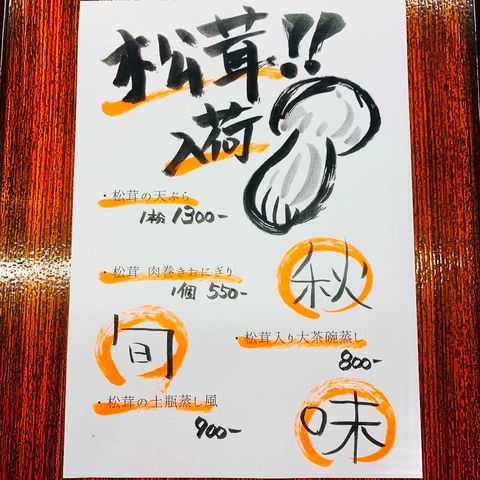 松茸!!
入荷
・松茸の天ぷら
1松 1300-
・松茸 肉巻きおにぎり
1個 550-
秋
・松茸入り大茶碗蒸し
800-
旬
・松茸の土瓶蒸し風
900-
味